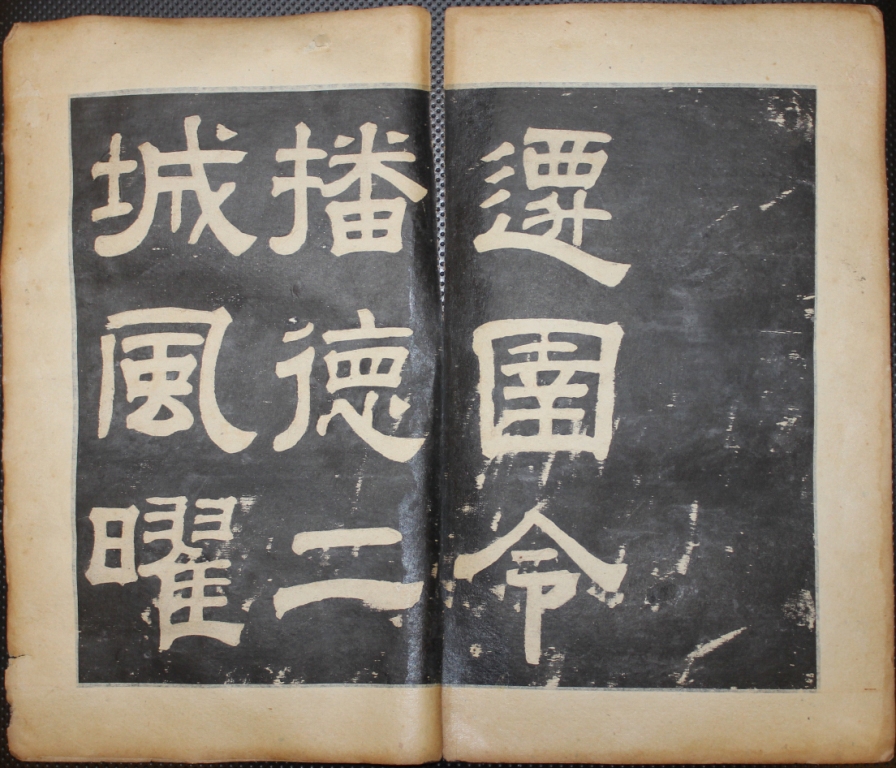 遷圉令
播德二
城風曜